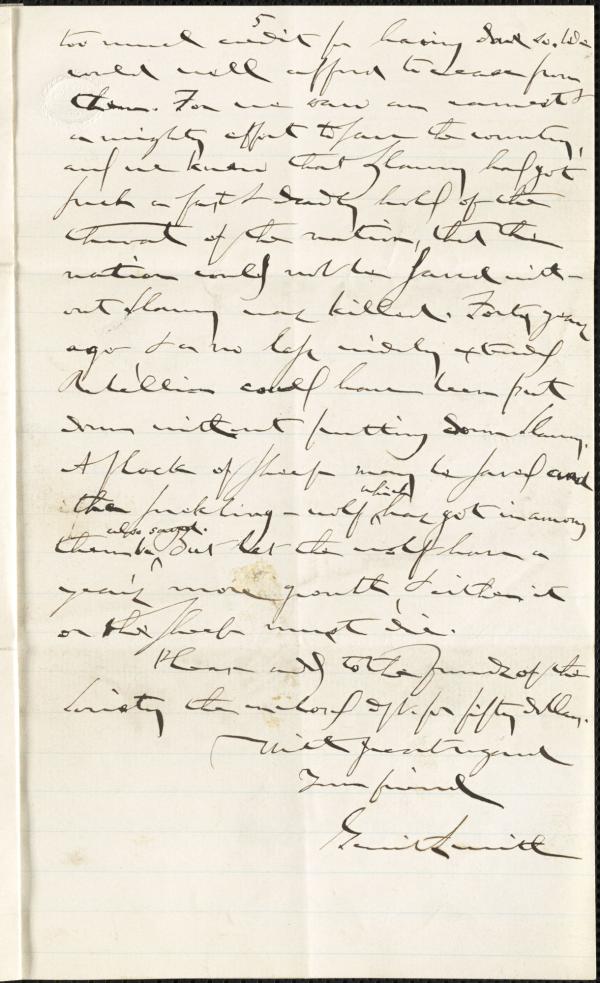 5
too much credit for having done so. We
could well afford to cease from
them. For we saw an earnest &
a mighty effort to save the country,
and we knew that Slavery had got
such a fast & deadly hold of the
throat of the nation, that the
nation could not be saved with-
out Slavery was killed. Forty years
ago & a no less widely extended
Rebellion could have been put
down without putting down Slavery.
A flock of sheep may be saved and
the suckling-wolf which has got in among
them be also saved. But let the wolf have a
year's more growth, & either it
or the sheep must die.
Please add to the funds of the
Society the enclosed dft. for fifty dollars.
With great regard
Your friend
Gerrit Smith